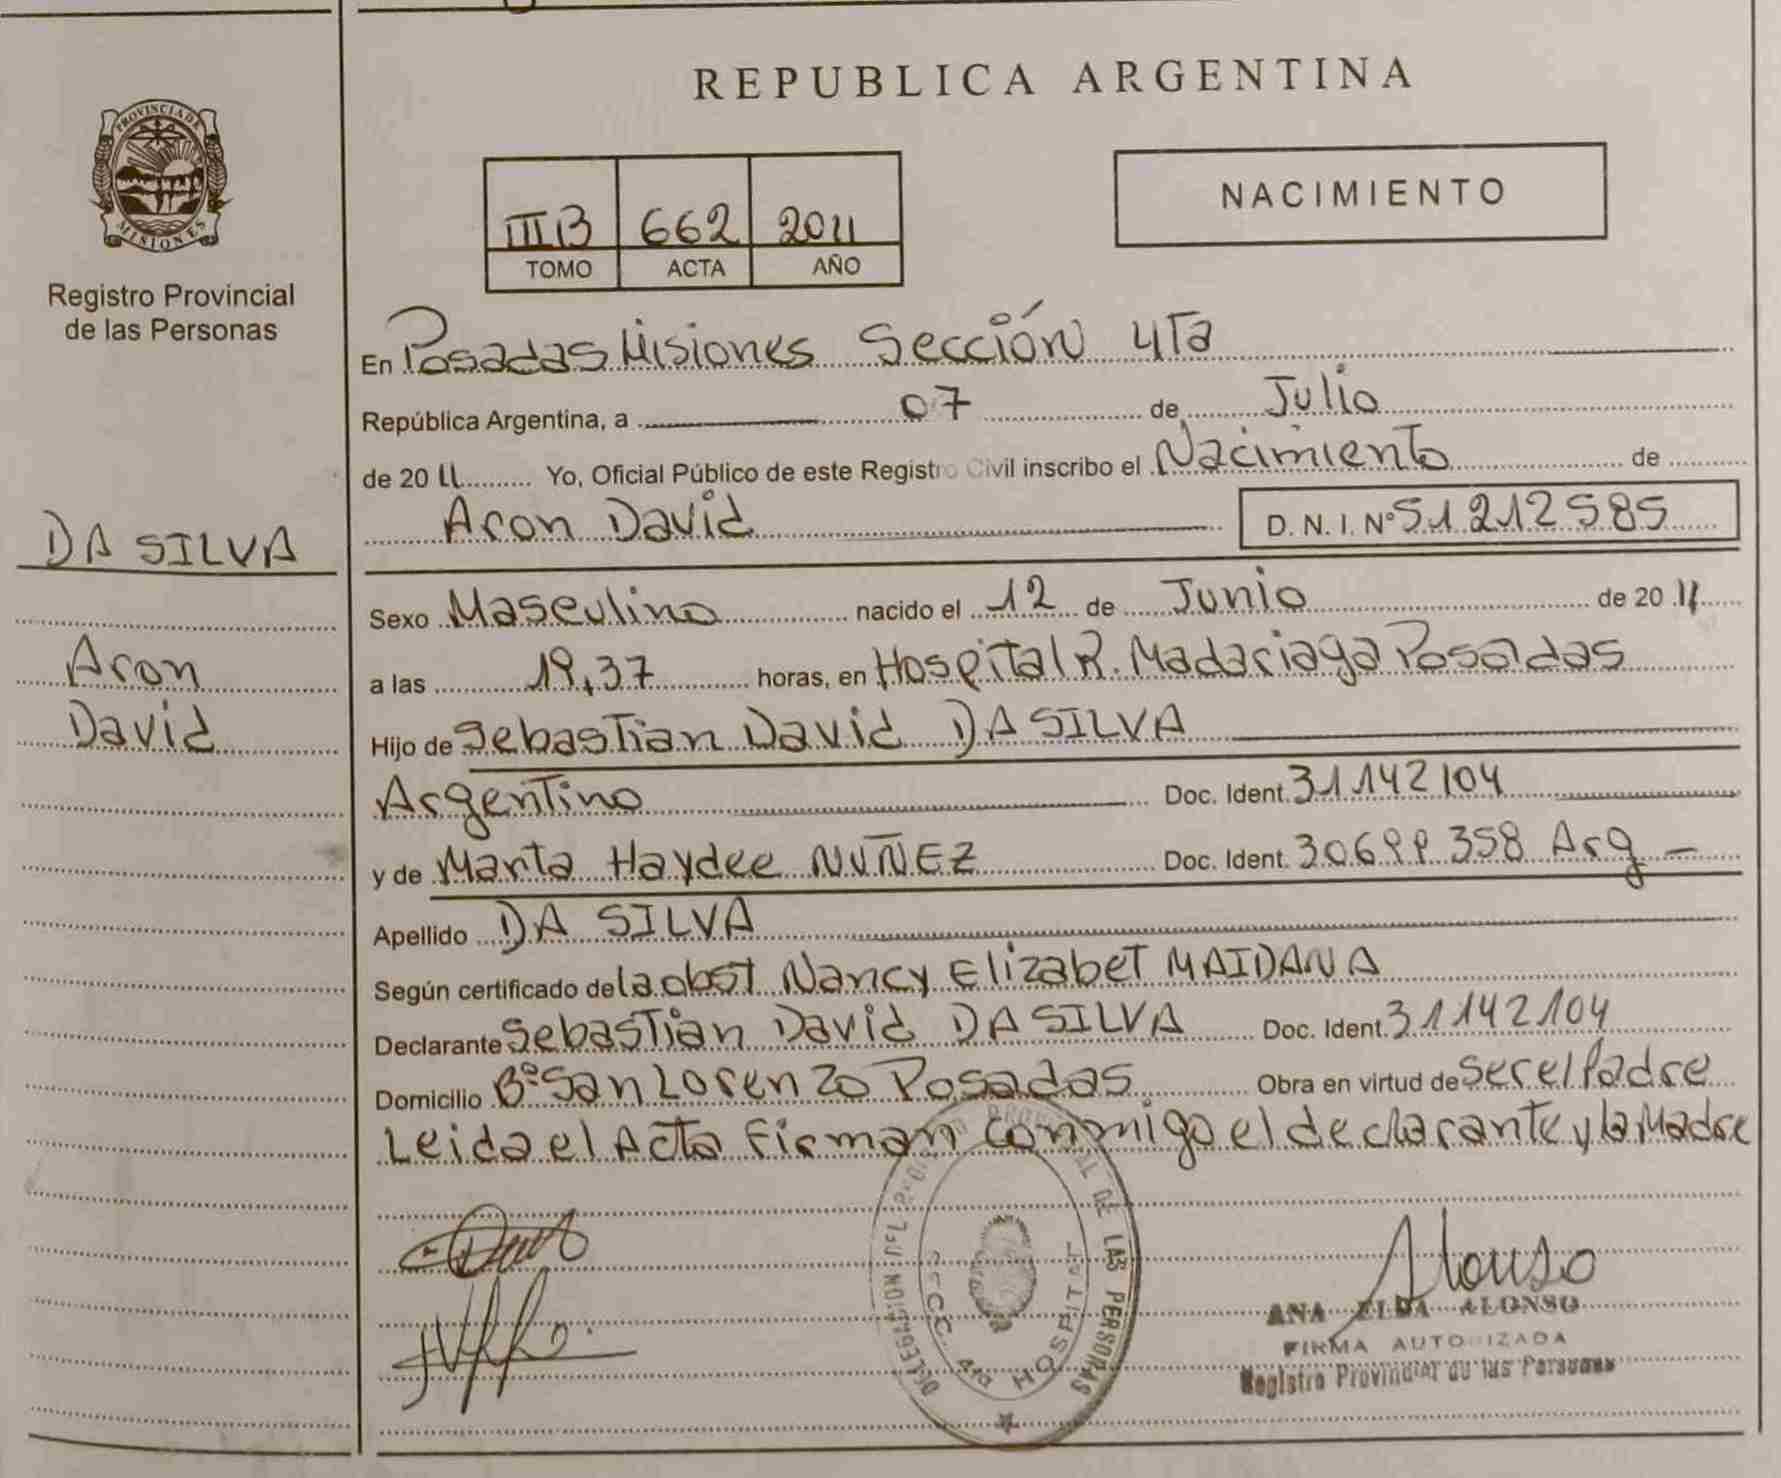 REPUBLICA ARGENTINA
PROVINCIA DE
MISIONES
Registro Provincial
de las Personas
IIIB 662 2011
TOMO ACTA AÑO
NACIMIENTO
En Posadas Misiones Sección 4Ta
República Argentina, a 07 de Julio
de 2011 Yo, Oficial Público de este Registro Civil inscribo el Nacimiento de
Aron David D. N. I. Nº 51212585
DA SILVA
Aron
David
Sexo Masculino nacido el 12 de Junio de 2011
a las 19,37 horas, en Hospital R. Madariaga Posadas
Hijo de Sebastian David DA SILVA
Argentino Doc. Ident. 31142104
y de Marta Haydee NUÑEZ Doc. Ident. 30699358 Arg -
Apellido DA SILVA
Según certificado de la obst Nancy Elizabet MAIDANA
Declarante Sebastian David DA SILVA Doc. Ident. 31142104
Domicilio Bº San Lorenzo Posadas Obra en virtud de ser el Padre
Leida el Acta Firman conmigo el declarante y la Madre
DE LAS PERSONAS
HOSPITAL
Alonso
ANA ELDA ALONSO
FIRMA AUTORIZADA
Registro Provincial de las Personas